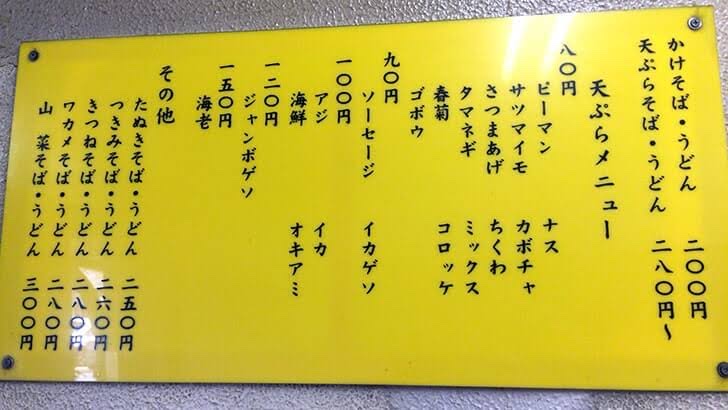 かけそば・うどん 二〇〇円
天ぷらそば・うどん 二八〇円〜
天ぷらメニュー
八〇円
ピーマン ナス
サツマイモ カボチャ
さつまあげ ちくわ
タマネギ ミックス
春菊 コロッケ
ゴボウ
九〇円
ソーセージ イカゲソ
一〇〇円
アジ イカ
海鮮 オキアミ
一二〇円
ジャンボゲソ
一五〇円
海老
その他
たぬきそば・うどん 二五〇円
つきみそば・うどん 二六〇円
きつねそば・うどん 二八〇円
ワカメそば・うどん 二八〇円
山菜そば・うどん 三〇〇円